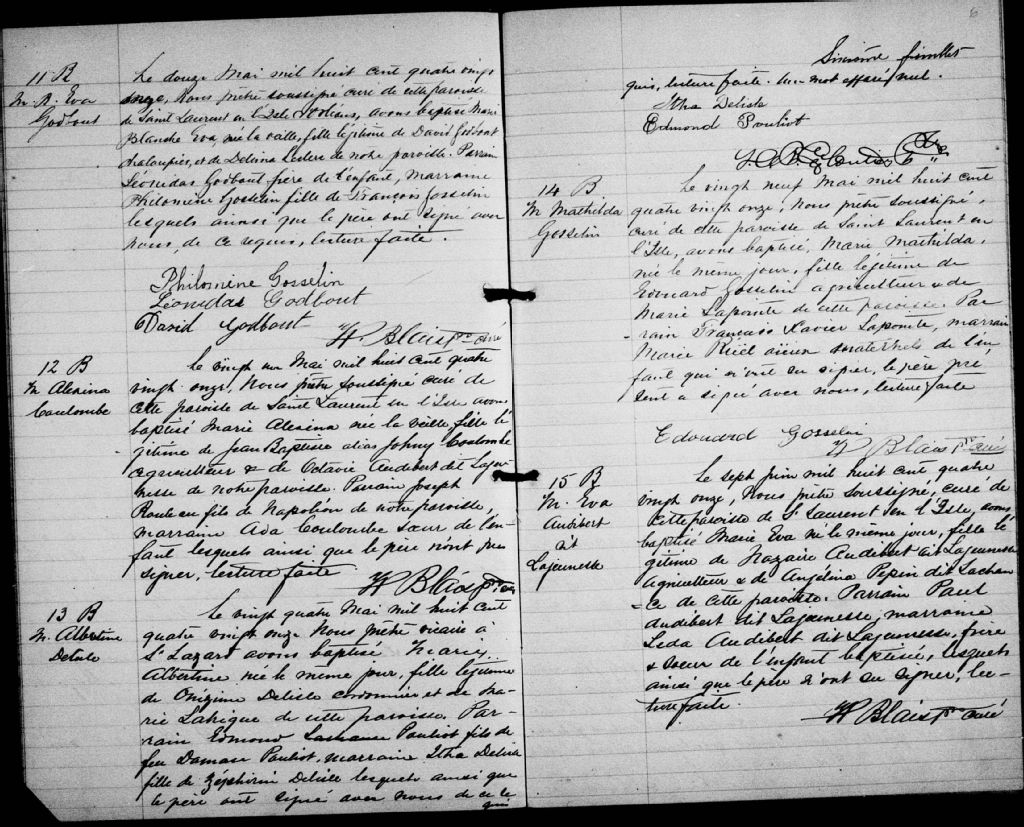 11 B
M. B. Eva
Godbout
Le douze Mai mil huit cent quatre vingt
onze, Nous prêtre soussigné curé de cette paroisse
de Saint Laurent en l'Isle Orléans, avons baptisé Marie
Blanche Eva, née la veille, fille légitime de David Godbout
chaloupier, et de Delvina Leclerc de notre paroisse. Parrain
Léonidas Godbout frère de l'enfant, marraine
Philomène Gosselin fille de François Gosselin
lesquels ainsi que le père ont signé avec
nous, de ce requis, lecture faite.
Philomène Gosselin
Léonidas Godbout
David Godbout
Blais ptre curé
12 B
M Alexina
Coulombe
Le vingt un Mai mil huit cent quatre
vingt onze, Nous prêtre soussigné curé de
cette paroisse de Saint Laurent en l'Isle avons
baptisé Marie Alexina née la veille, fille lé
gitime de Jean Baptiste alias Johny Coulombe
agriculteur & de Octavie Audibert dit Lajeu
nesse de notre paroisse. Parrain Joseph
Rouleau fils de Napoléon de notre paroisse,
marraine Ada Coulombe sœur de l'en-
fant lesquels ainsi que le père n'ont pu
signer, lecture faite
Blais ptre curé
13 B
M. Albertine
Delisle
Le vingt quatre Mai mil huit cent
quatre vingt onze Nous prêtre vicaire à
St Lazare avons baptisé Marie
Albertine née le même jour, fille légitime
de Onézime Delisle cordonnier et de Ma-
rie de cette paroisse. Par-
rain Edmond Pouliot fils de
feu Damase Pouliot, marraine Itha Delisle
fille de Zéphirin Delisle lesquels ainsi que
le père ont signé avec nous de ce
qui
6
feuillet
quis, lecture faite. un mot nul.
Itha Delisle
Edmond Pouliot
Ptre
14 B
M Mathilda
Gosselin
Le vingt neuf Mai mil huit cent
quatre vingt onze, Nous prêtre soussigné,
curé de cette paroisse de Saint Laurent en
l'Isle, avons baptisé, Marie Mathilda,
née le même jour, fille légitime de
Edouard Gosselin agriculteur & de
Marie Lapointe de cette paroisse. Par
- rain François Xavier Lapointe, marraine
Marie aïeux maternels de l'en
fant qui n'ont su signer, le père pré
sent a signé avec nous, lecture faite
Edouard Gosselin
Blais ptre curé
15 B
M. Eva
Audibert
dit
Lajeunesse
Le sept juin mil huit cent quatre
vingt onze, Nous prêtre soussigné, curé de
cette paroisse de St Laurent en l'Isle, avons
baptisé Marie Eva née le même jour, fille lé
gitime de Nazaire Audibert dit Lajeunesse
agriculteur & de Angélina Pepin dit Lachan
- ce de cette paroisse. Parrain Paul
Audibert dit Lajeunesse, marraine
Leda Audibert dit Lajeunesse, frère
& sœur de l'enfant baptisé, lesquels
ainsi que le père n'ont su signer, lec-
ture faite.
Blais ptre curé